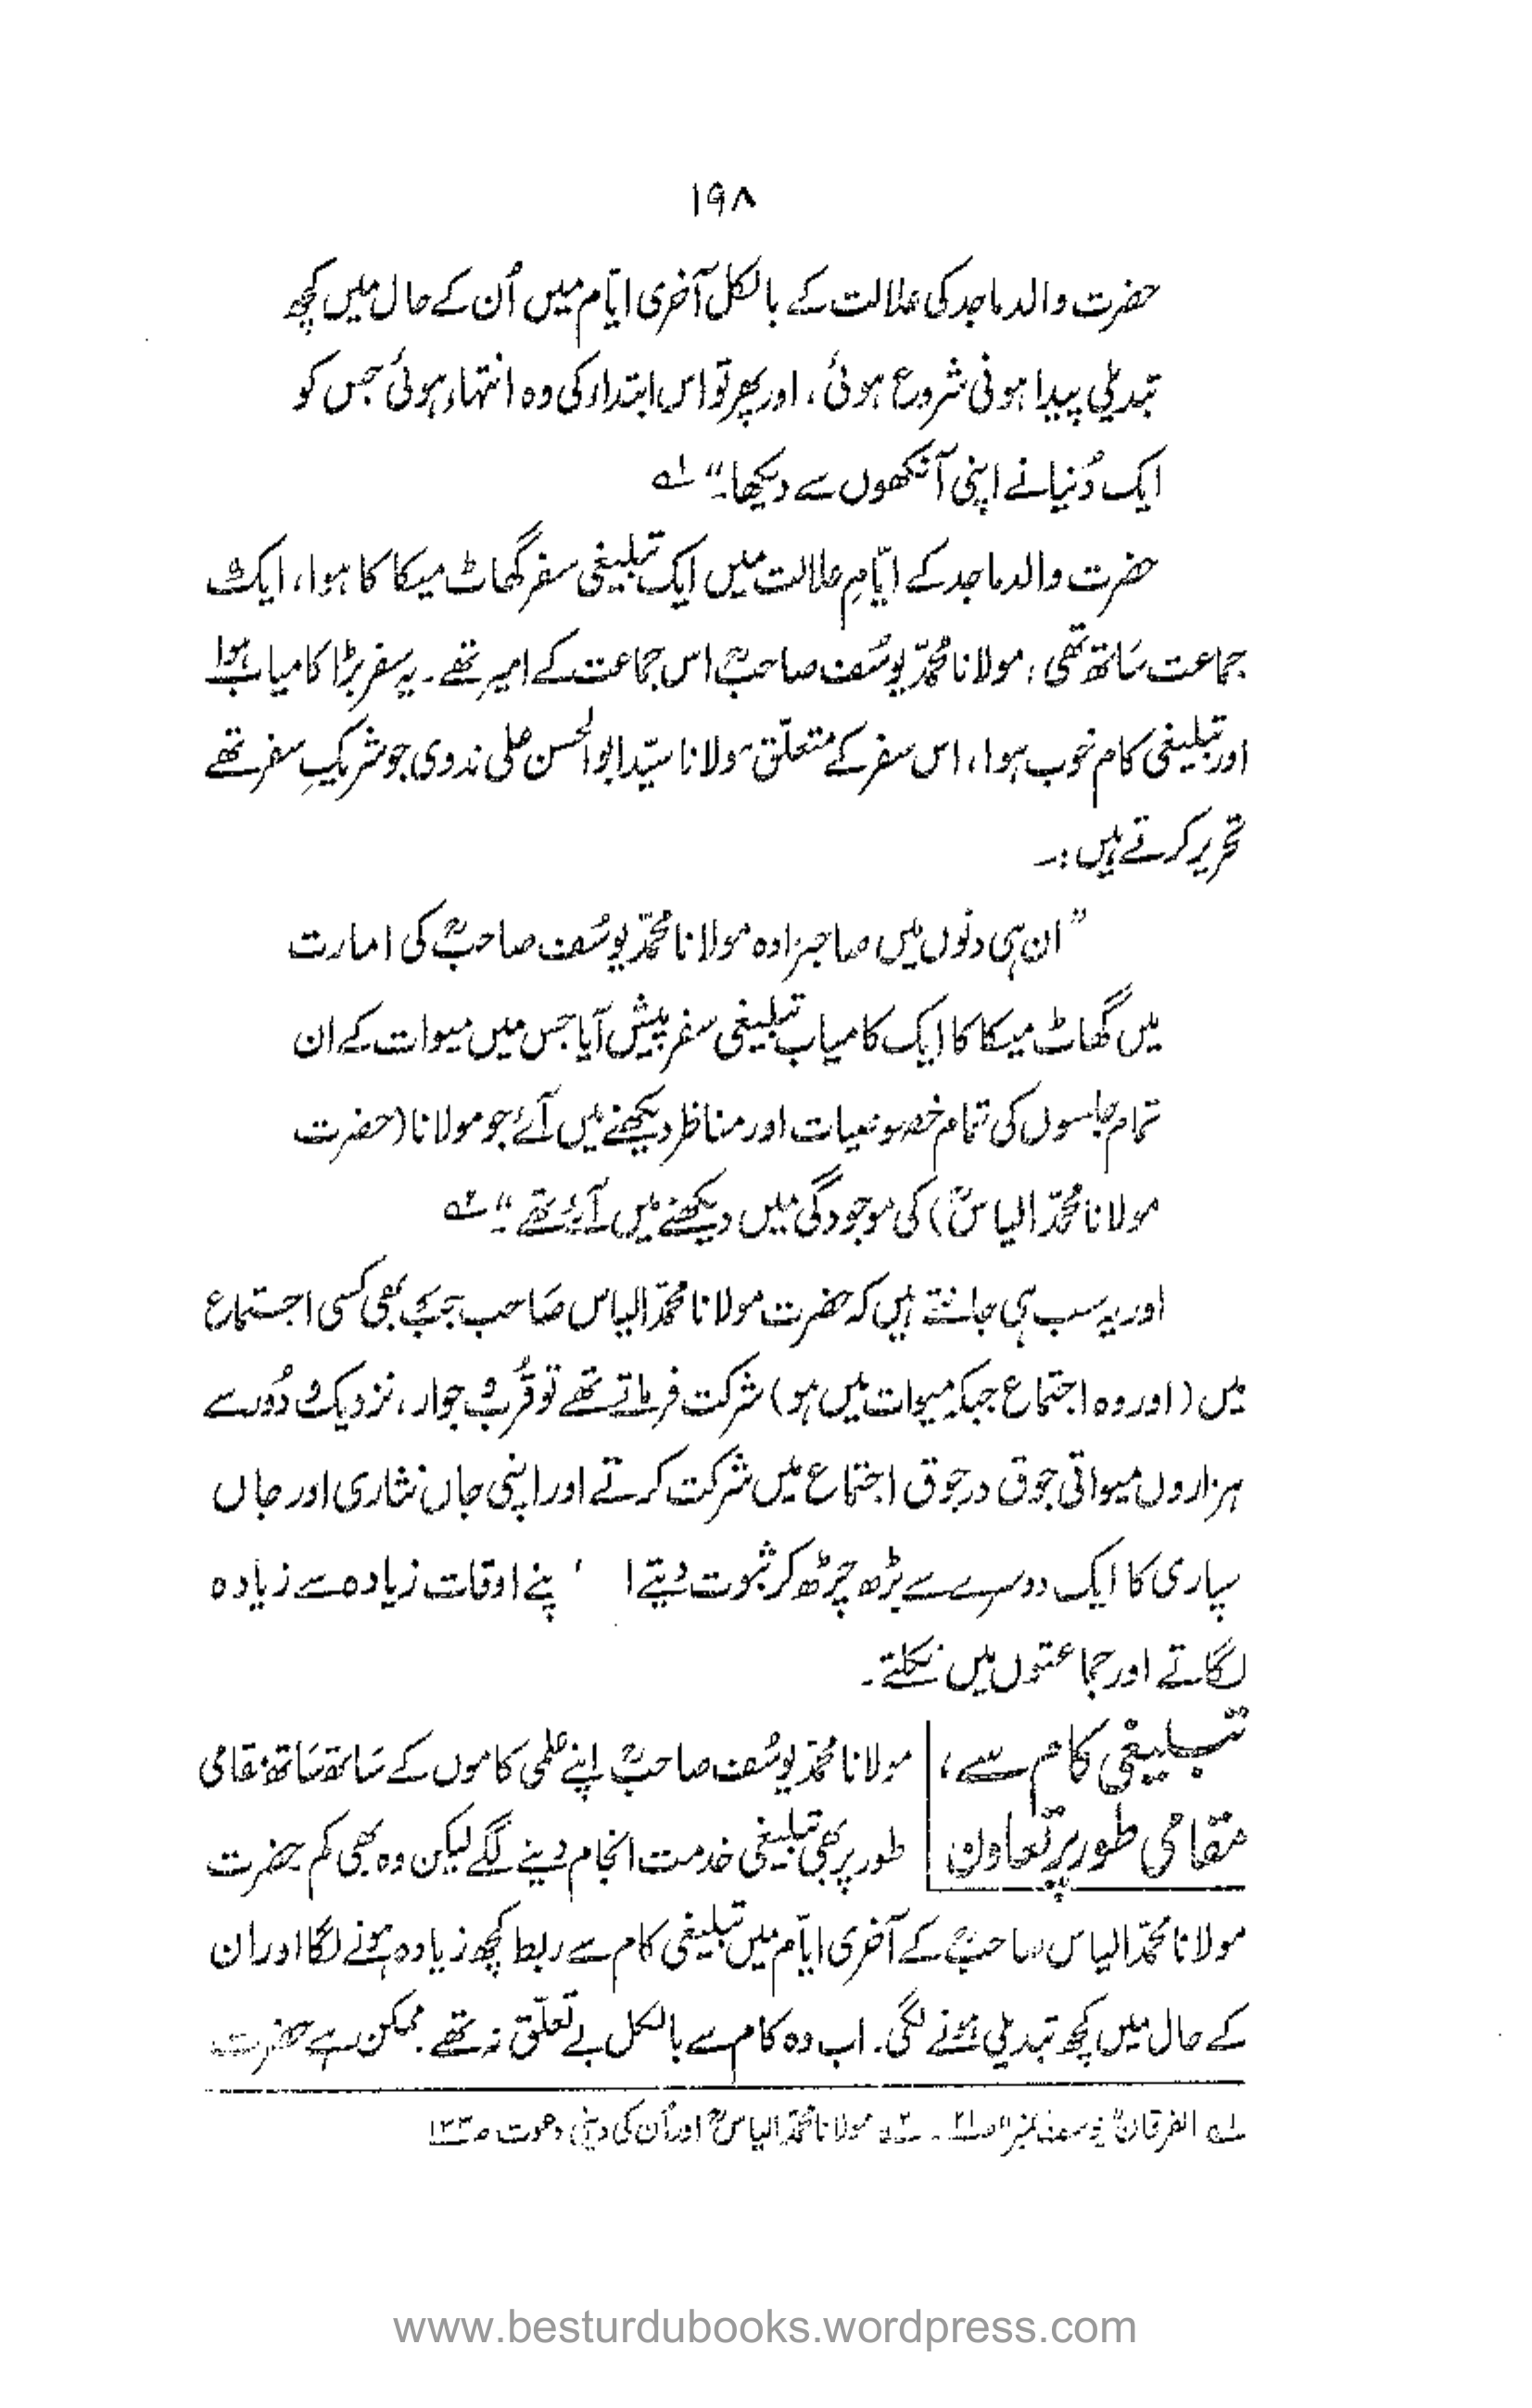 ۱۹۸
حضرت والد ماجد کی علالت کے بالکل آخری ایّام میں اُن کے حال میں کچھ
تبدیلی پیدا ہونی شروع ہوئی، اور پھر تو اس ابتداء کی وہ انتہاء ہوئی جس کو
ایک دُنیا نے اپنی آنکھوں سے دیکھا۔" لہ
حضرت والد ماجد کے ایّامِ علالت میں ایک تبلیغی سفر گھاٹ میکا کا ہوا، ایک
جماعت ساتھ تھی، مولانا محمّد یوسُف صاحبؒ اس جماعت کے امیر تھے۔ یہ سفر بڑا کامیاب ہوا
اور تبلیغی کام خوب ہوا، اس سفر کے متعلّق مولانا سیّد ابوالحسن علی ندوی جو شریکِ سفر تھے
تحریر کرتے ہیں:۔
"ان ہی دنوں میں صاحبزادہ مولانا محمّد یوسُف صاحبؒ کی امارت
میں گھاٹ میکا کا ایک کامیاب تبلیغی سفر پیش آیا جس میں میوات کے ان
تمام جلسوں کی تمام خصوصیات اور مناظر دیکھنے میں آئے جو مولانا (حضرت
مولانا محمّد الیاسؒ) کی موجودگی میں دیکھنے میں آئے تھے۔" ۲ہ
اور یہ سب ہی جانتے ہیں کہ حضرت مولانا محمّد الیاس صاحب جب بھی کسی اجتماع
میں (اور وہ اجتماع جبکہ میوات میں ہو) شرکت فرماتے تھے تو قُرب جوار، نزدیک دُور سے
ہزاروں میواتی جوق در جوق اجتماع میں شرکت کرتے اور اپنی جاں نثاری اور جاں
سپاری کا ایک دوسرے سے بڑھ چڑھ کر ثبوت دیتے ا ' پنے اوقات زیادہ سے زیادہ
لگاتے اور جماعتوں میں نکلتے۔
تبلیغی کام سے،
مقامی طور پر تعاون
مولانا محمّد یوسُف صاحبؒ اپنے علمی کاموں کے ساتھ ساتھ مقامی
طور پر بھی تبلیغی خدمت انجام دینے لگے لیکن وہ بھی کم حضرت
مولانا محمّد الیاس صاحبؒ کے آخری ایّام میں تبلیغی کام سے ربط کچھ زیادہ ہونے لگا اور ان
کے حال میں کچھ تبدیلی ہونے لگی۔ اب وہ کام سے بالکل بے تعلّق نہ تھے۔ ممکن ہے حضرت
لہ الفرقان "یوسف نمبر" ص۲۱ ۔ ۲ہ مولانا محمّد الیاسؒ اور اُن کی دینی دعوت ص۱۲۳
www.besturdubooks.wordpress.com